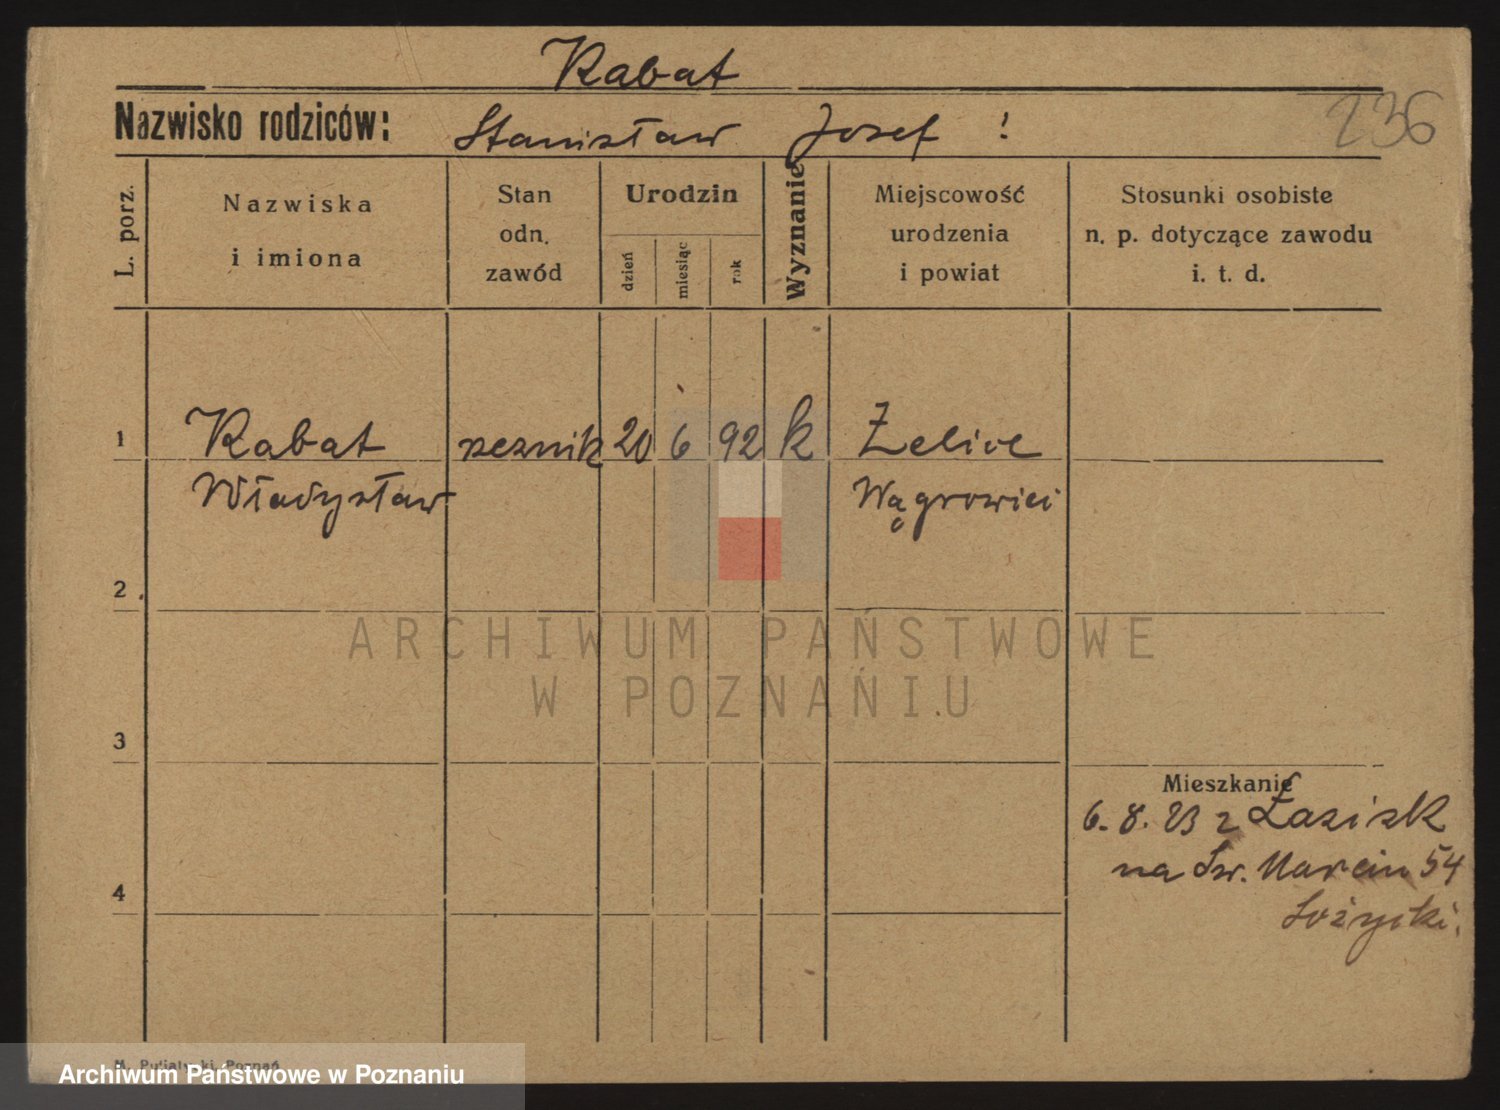 Rabat
Nazwisko rodziców: Stanisław Josef !
236
L. porz.
Nazwiska
i imiona
Stan
odn.
zawód
Urodzin
dzień
miesiąc
rok
Wyznanie
Miejscowość
urodzenia
i powiat
Stosunki osobiste
n. p. dotyczące zawodu
i. t. d.
1 Rabat rzeznik 20 6 92 k Żelice
Władysław Wągrowiec
2
3
4
Mieszkanie
6. 8. 23 z
na Św. Marcin 54
ARCHIWUM PAŃSTWOWE
W POZNANIU
Poznań
Archiwum Państwowe w Poznaniu